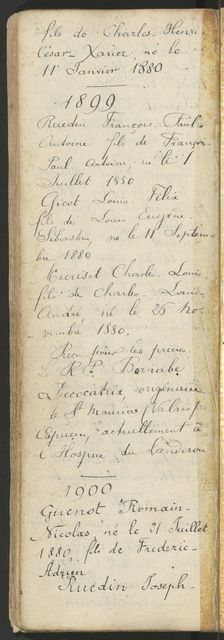 fils de Charles Henri
César-Xavier né le
11 Janvier 1880.
1899
Ruedin François Paul-
Antoine fils de François
Paul Antoine, né le 1
Juillet 1880
Gicot Louis Félix
fils de Louis Eugène
Sébastien, né le 11 Septem-
bre 1880
Muriset Charles Louis
fils de Charles Louis
André, né le 26 No-
vembre 1880.
Reçu pour les prières
le R. P. Barnabé
originaire
de St Maurice (Valais)
Capucin, actuellement à
l'Hospice du Landeron
1900
Guenot Romain-
Nicolas, né le 21 Juillet
1880, fils de Frédéric-
Adrien
Ruedin Joseph-